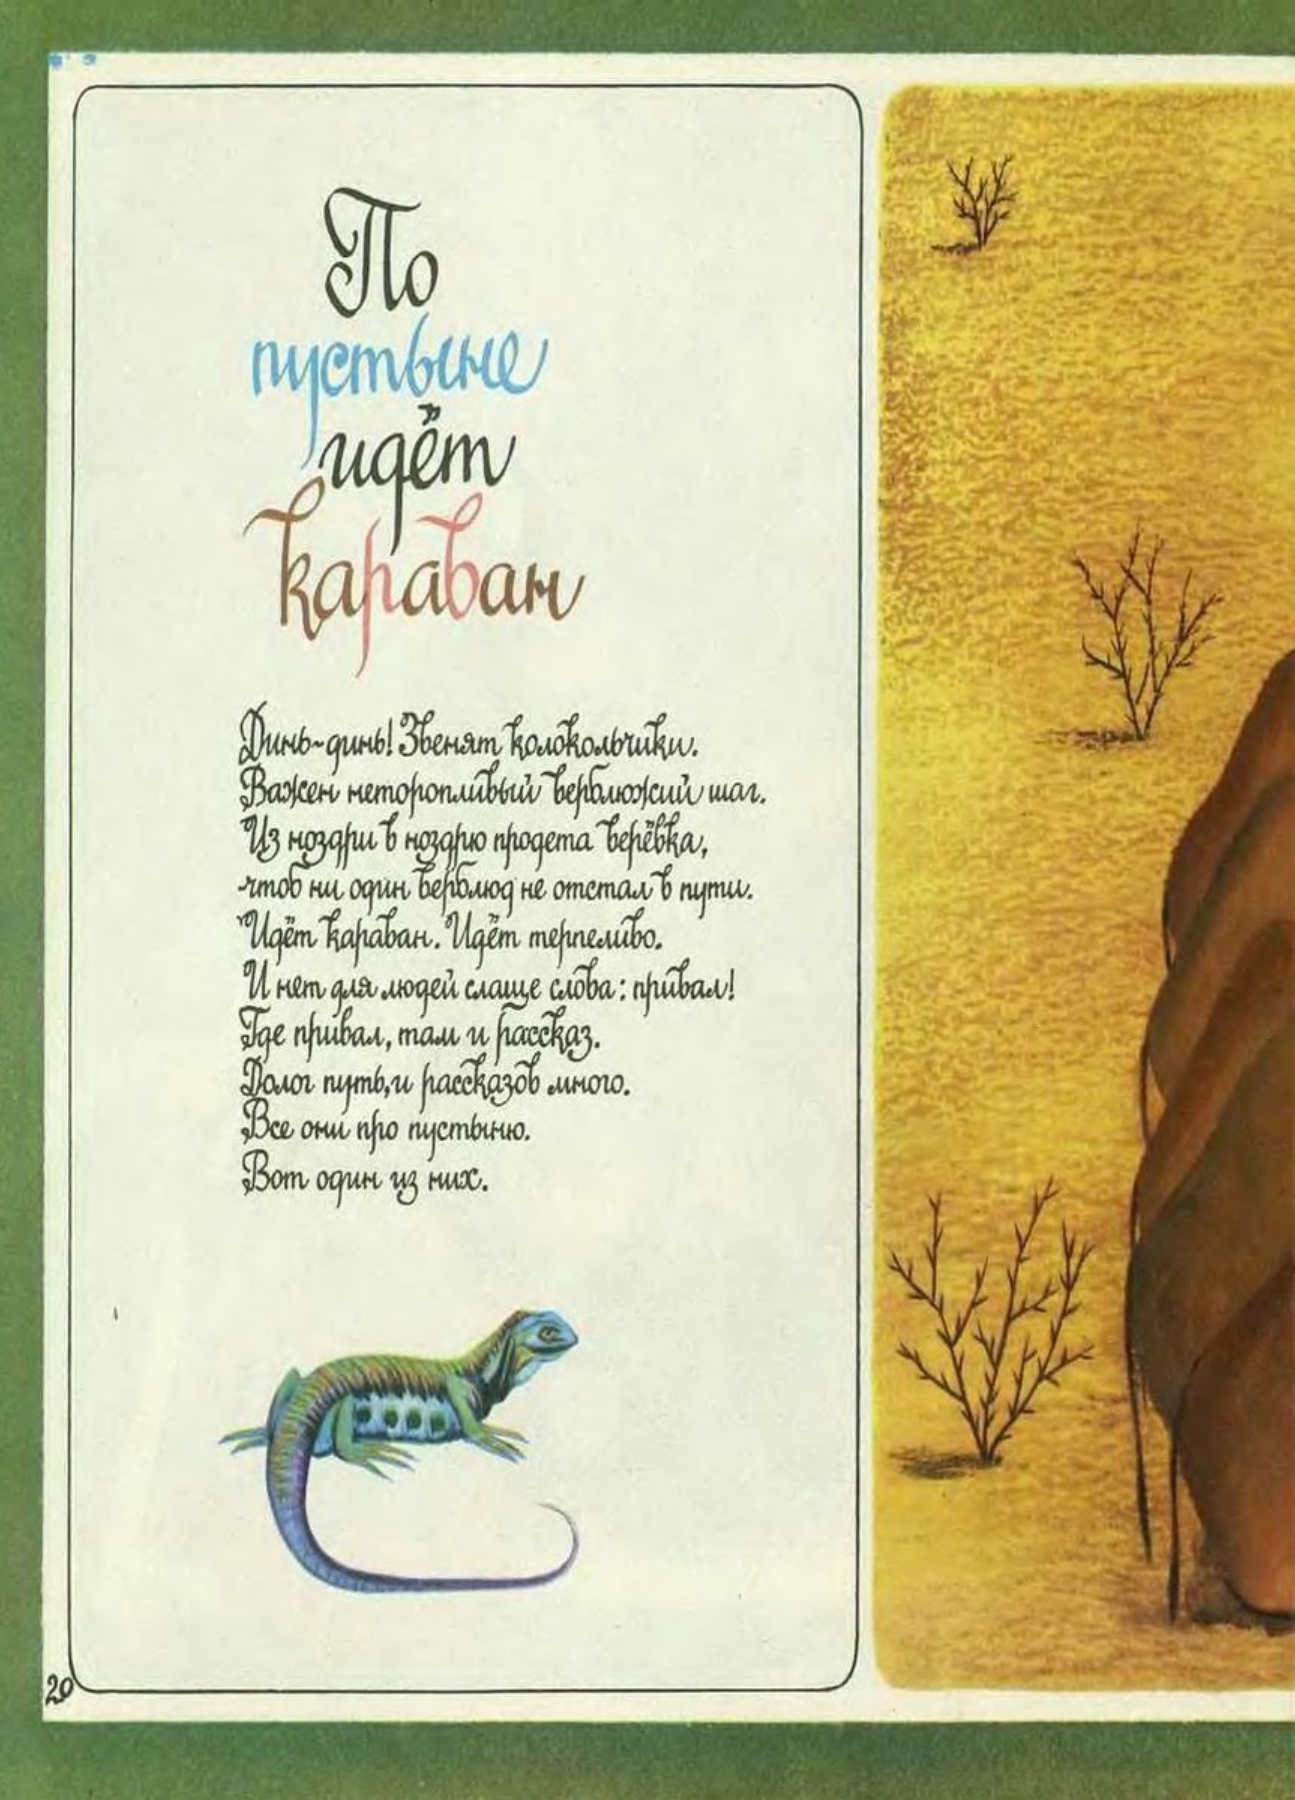 По
пустыне
идёт
караван
Динь-динь! Звенят колокольчики.
Важен неторопливый верблюжий шаг.
Из ноздри в ноздрю продета верёвка,
чтоб ни один верблюд не отстал в пути.
Идёт караван. Идёт терпеливо.
И нет для людей слаще слова: привал!
Где привал, там и рассказ.
Долог путь, и рассказов много.
Все они про пустыню.
Вот один из них.
20